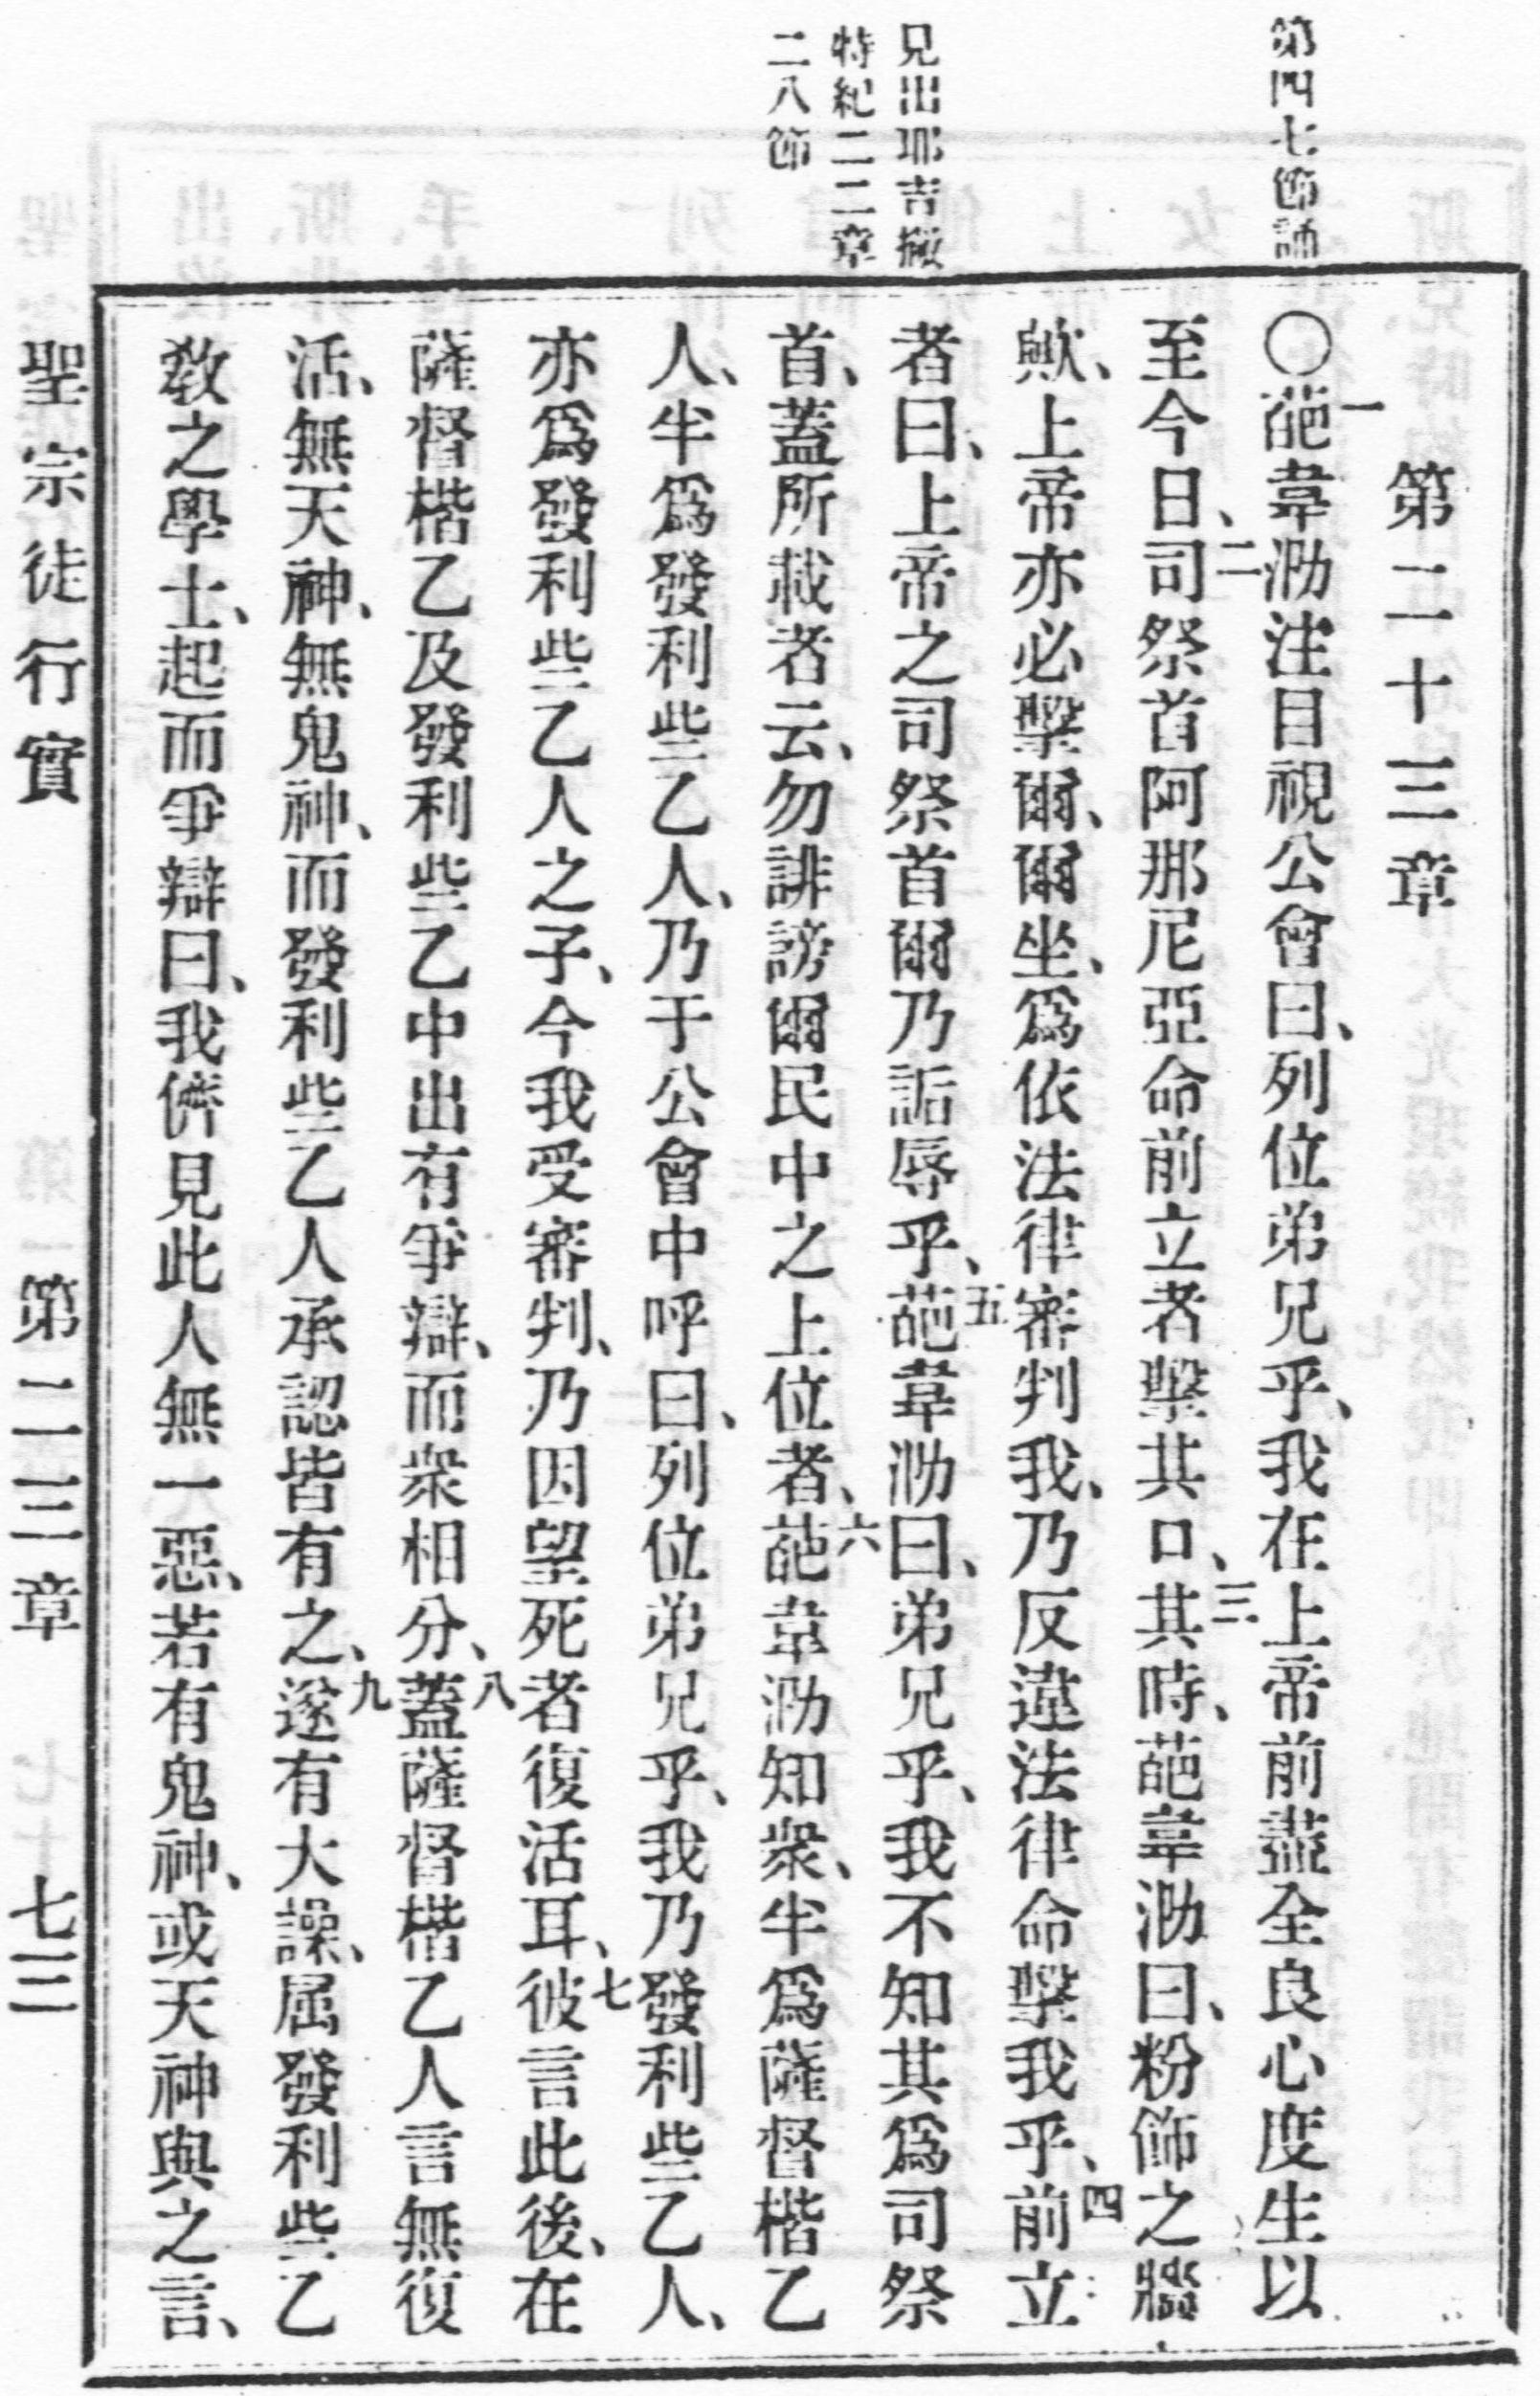 第四七節誦
見出耶吉撇
特紀二二章
二八節
第二十三章
〇一葩韋泐注目視公會曰、列位弟兄乎、我在上帝前盡全良心度生以
至今日、二司祭首阿那尼亞命前立者擊其口、三其時、葩韋泐曰、粉飾之牆
歟、上帝亦必擊爾、爾坐、爲依法律審判我、乃反違法律命擊我乎、四前立
者曰、上帝之司祭首爾乃詬辱乎、五葩韋泐曰、弟兄乎、我不知其爲司祭
首、蓋所載者云、勿誹謗爾民中之上位者、六葩韋泐知衆、半爲薩督楷乙
人、半爲發利些乙人、乃于公會中呼曰、列位弟兄乎、我乃發利些乙人、
亦爲發利些乙人之子、今我受審判、乃因望死者復活耳、七彼言此後、在
薩督楷乙及發利些乙中出有爭辯、而衆相分、八蓋薩督楷乙人言無復
活、無天神、無鬼神、而發利些乙人承認皆有之、九遂有大譟、屬發利些乙
敎之學士、起而爭辯曰、我儕見此人無一惡、若有鬼神、或天神與之言、
聖宗徒行實　第二三章　七三